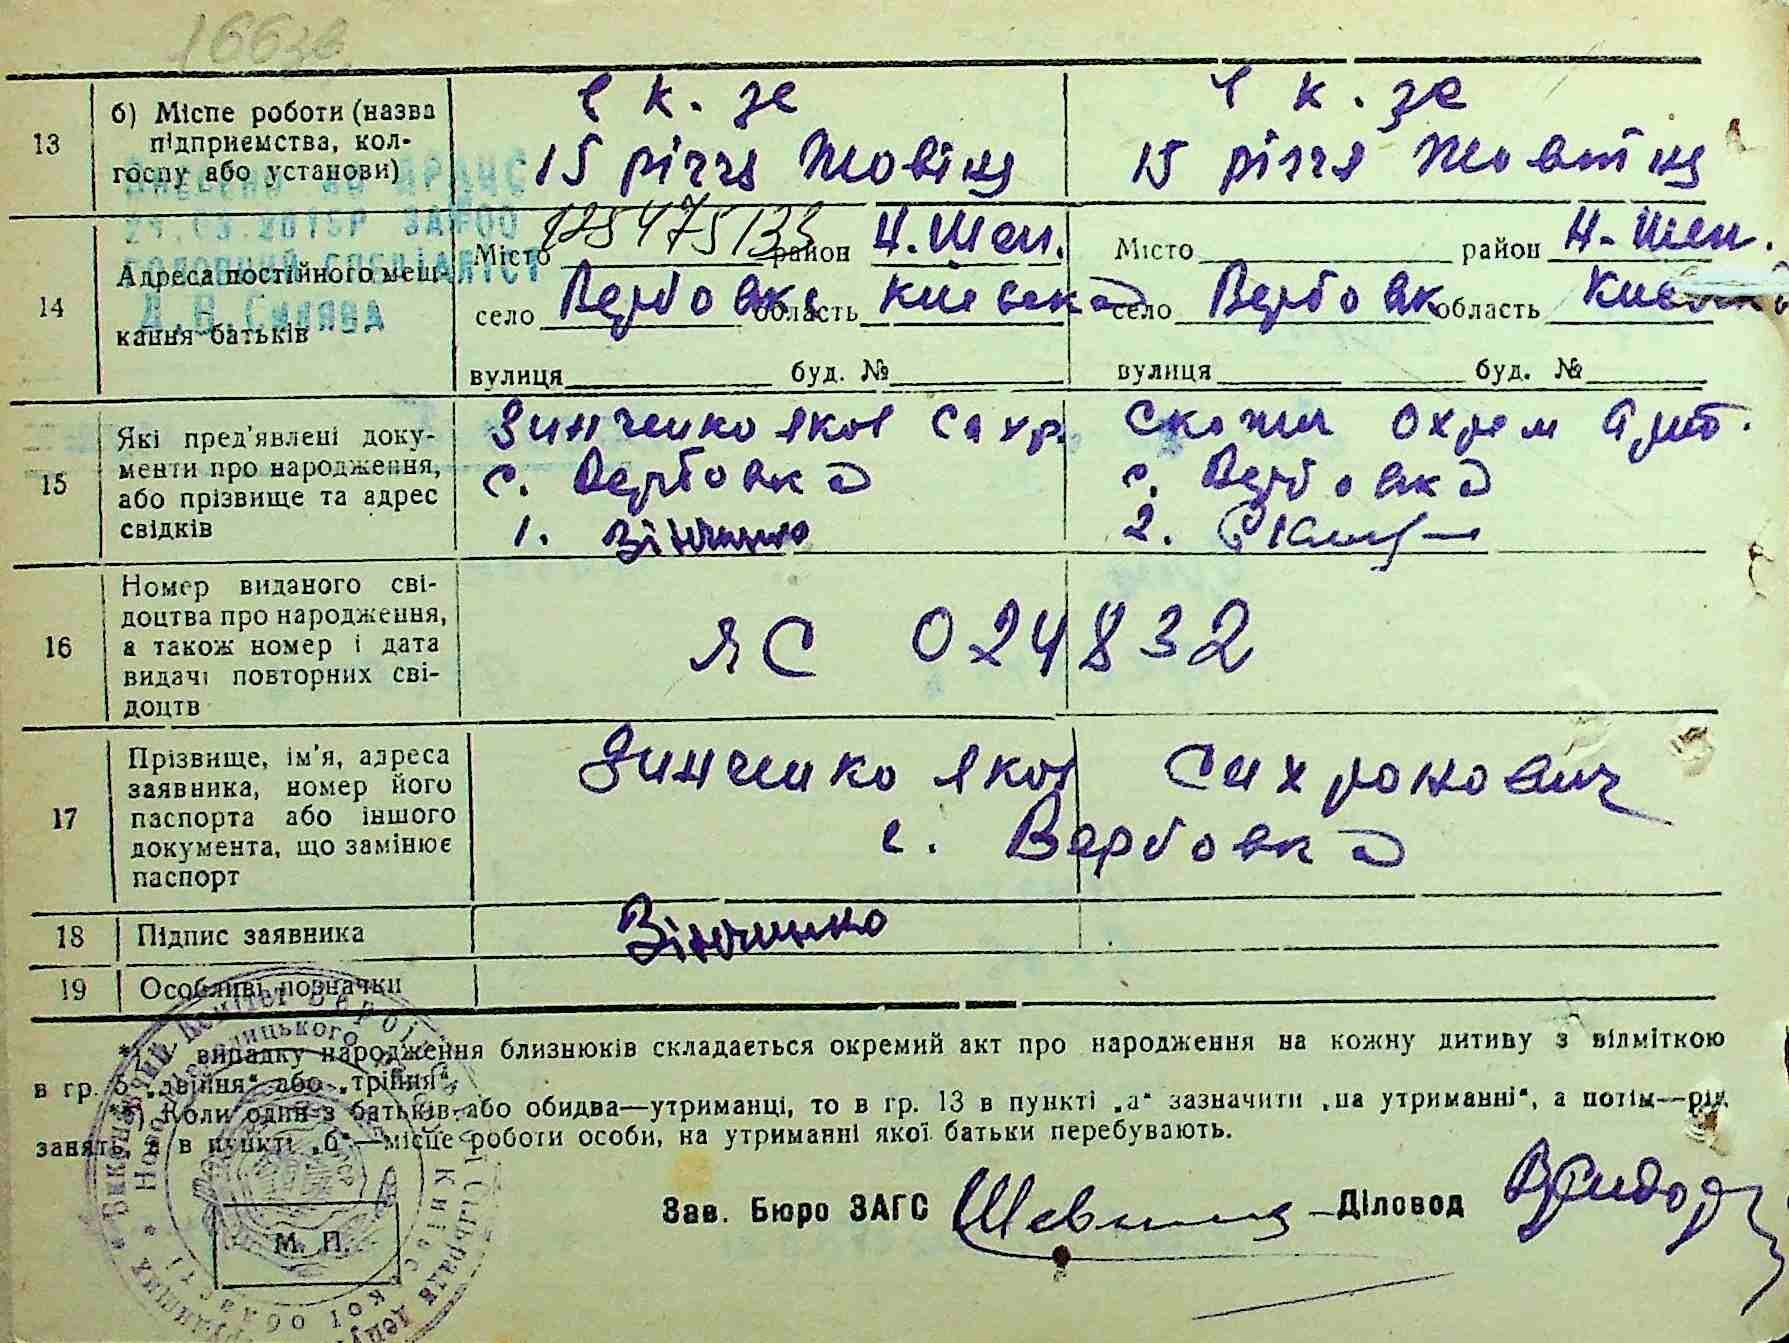 13 б) Місце роботи (назва підприємства, колгоспу або установи)
в к. зе
15 річчя Жовтня
в к. зе
15 річчя Жовтня
14 Адреса постійного мешкання батьків
Місто район Н. Шеп.
село Вербовка область Київська
вулиця буд. №
Місто район Н. Шеп.
село Вербовк область Киевск
вулиця буд. №
15 Які пред’явлені документи про народження, або прізвище та адрес свідків
Зинченко Яков Сахр.
с. Вербовка
1. Зінченко
Охрем
с. Вербовка
2.
16 Номер виданого свідоцтва про народження, а також номер і дата видачі повторних свідоцтв
ЯС 024832
17 Прізвище, ім’я, адреса заявника, номер його паспорта або іншого документа, що замінює паспорт
Зинченко Яков Сахронович
с. Вербовка
18 Підпис заявника
Зінченко
19 Особливі позначки
*) У випадку народження близнюків складається окремий акт про народження на кожну дитину з відміткою
в гр. 6 „двійня“ або „трійня“.
*) Коли один з батьків або обидва—утриманці, то в гр. 13 в пункті „а“ зазначити „на утриманні“, а потім—рід
занять, а в пункті „б“—місце роботи особи, на утриманні якої батьки перебувають.
Зав. Бюро ЗАГС Діловод
М. П.